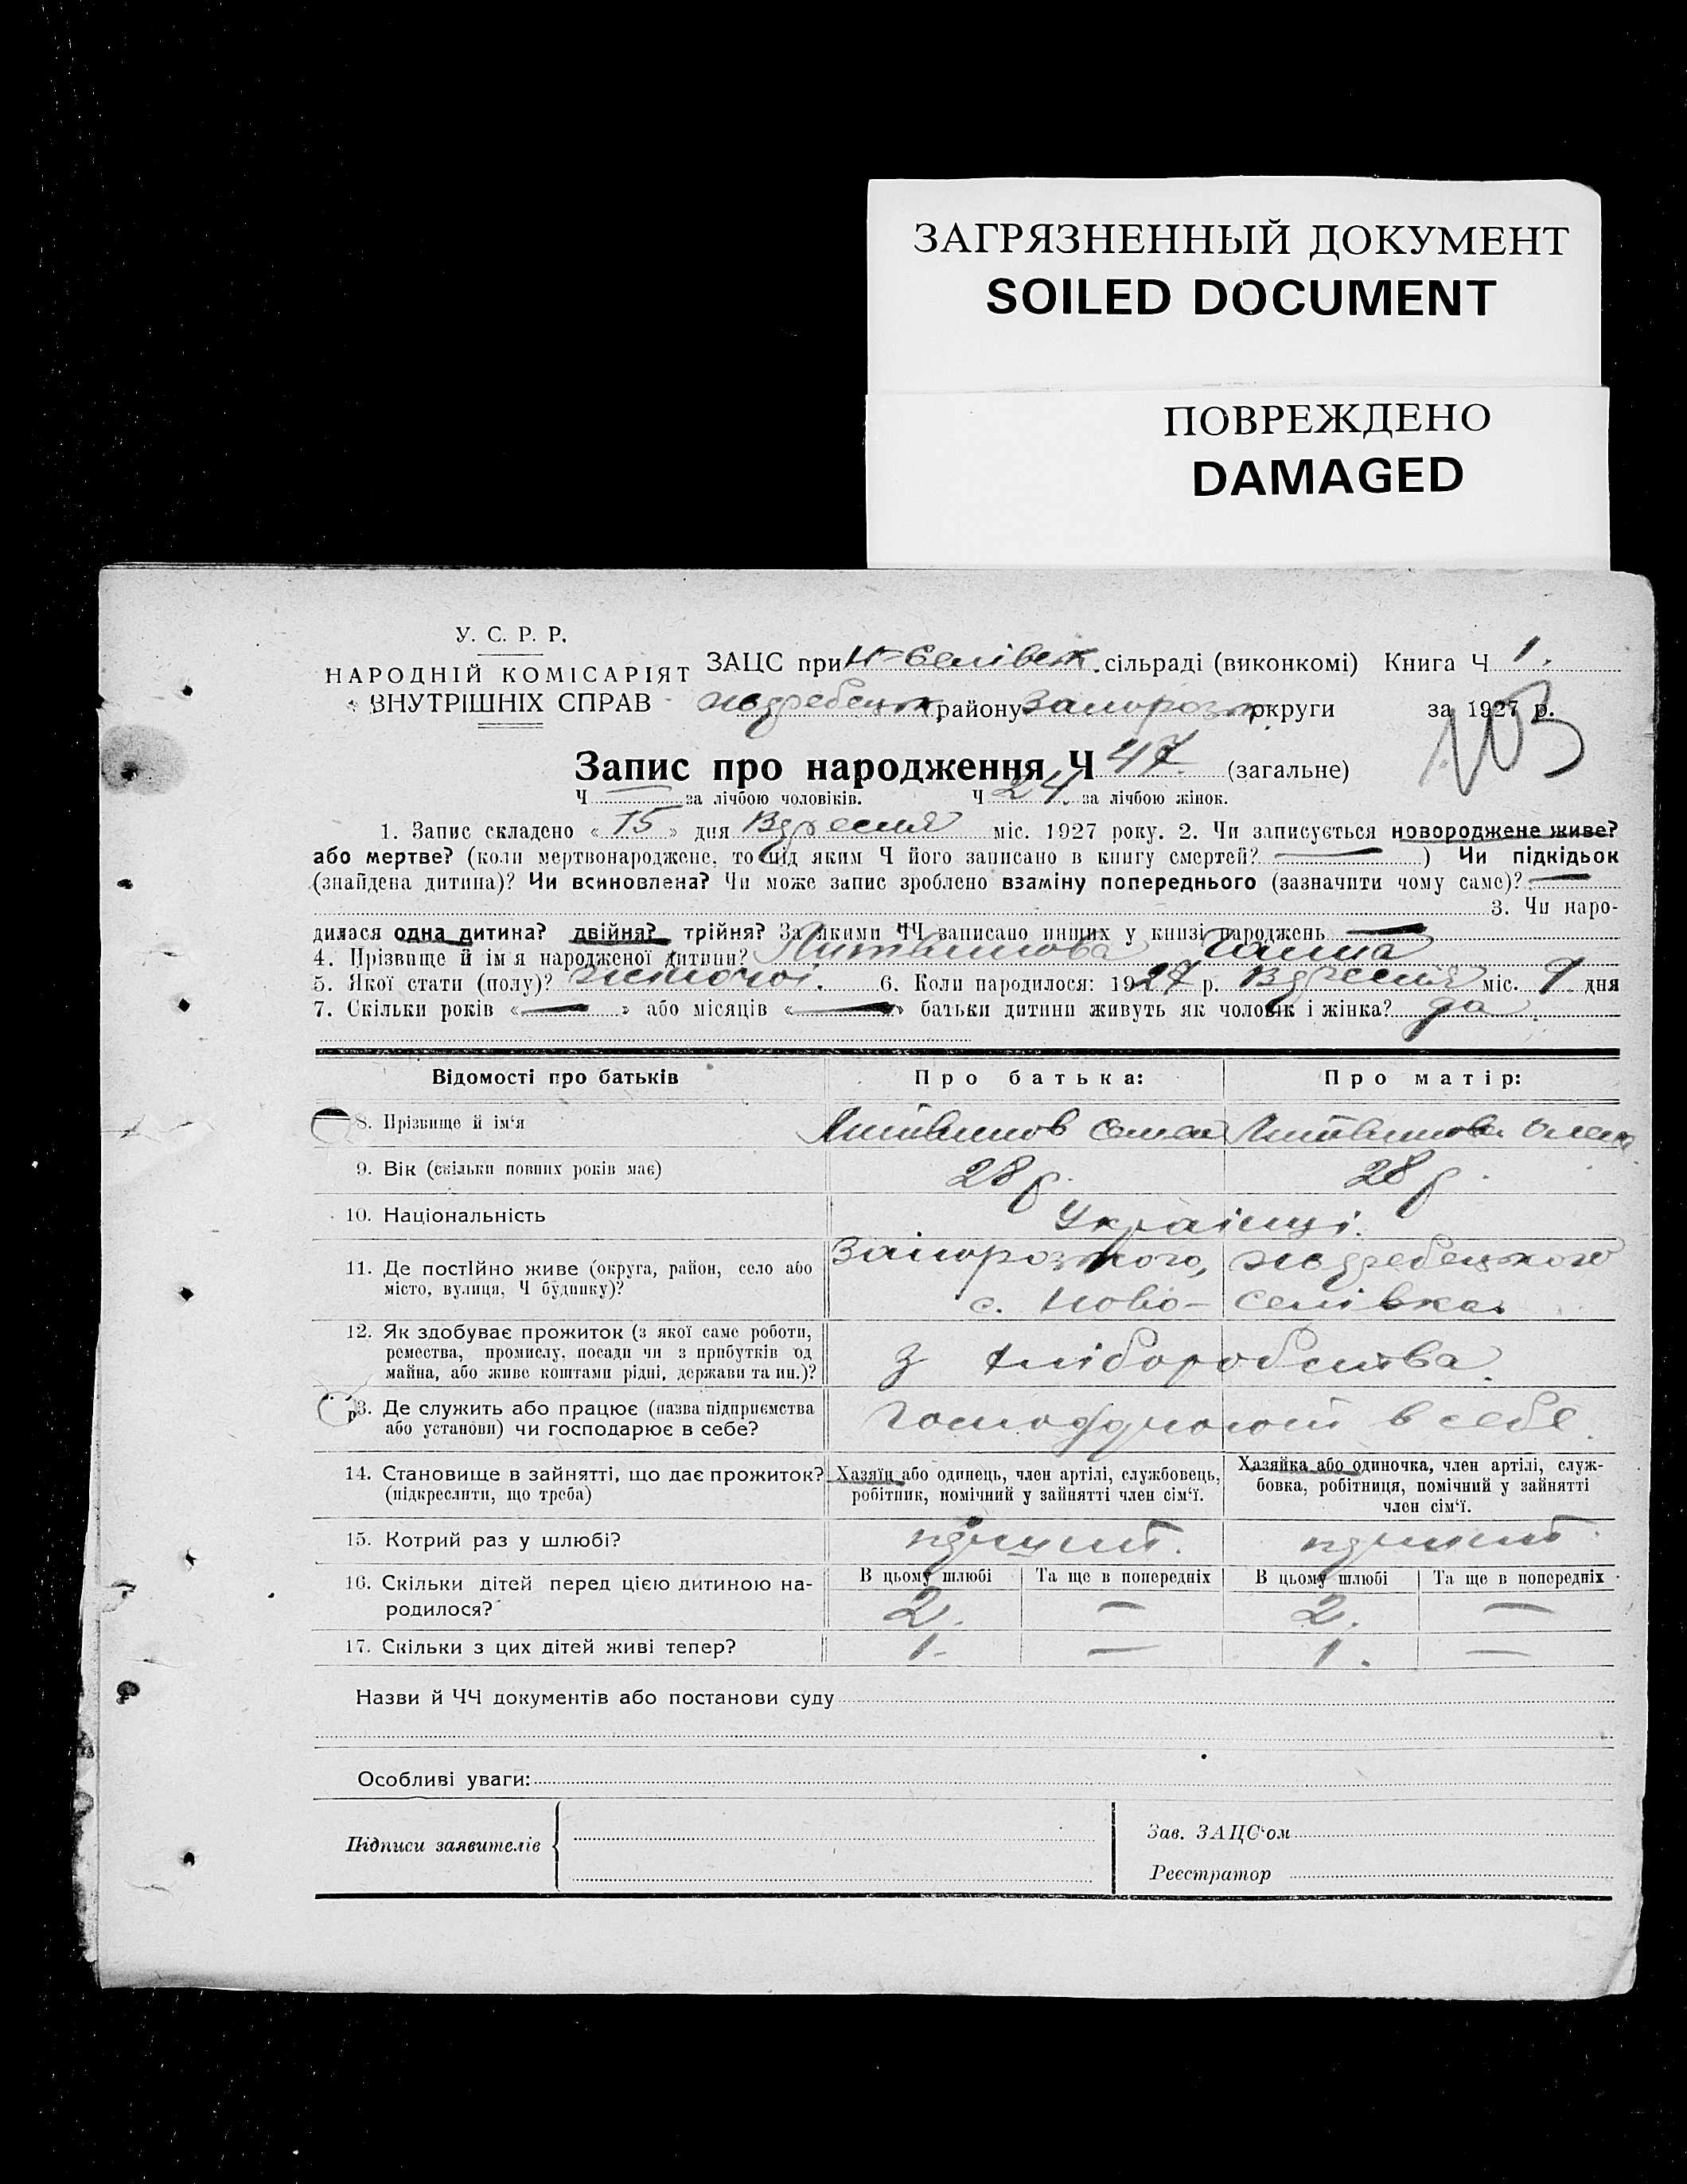 ЗАГРЯЗНЕННЫЙ ДОКУМЕНТ
SOILED DOCUMENT
ПОВРЕЖДЕНО
DAMAGED
У. С. Р. Р.
НАРОДНІЙ КОМІСАРІЯТ
ВНУТРІШНІХ СПРАВ
ЗАЦС при Н-Селівськ. сільраді (виконкомі) Книга Ч 1.
Жеребецьк. району Запорозьк округи за 1927 р.
103
Запис про народження Ч 47. (загальне)
Ч — за лічбою чоловіків. Ч 24. за лічбою жінок.
1. Запис складено « 15 » дня Вересня міс. 1927 року. 2. Чи записується новороджене живе?
або мертве? (коли мертвонароджене, то під яким Ч його записано в книгу смертей? —) Чи підкідьок
(знайдена дитина)? Чи всиновлена? Чи може запис зроблено взаміну попереднього (зазначити чому саме)? —
3. Чи наро-
дилася одна дитина? двійня? трійня? За якими ЧЧ записано инших у книзі народжень —
4. Прізвище й ім'я народженої дитини? Литвинова Ганна
5. Якої стати (полу)? жіночої. 6. Коли народилося: 1927 р. Вересня міс. 9 дня
7. Скільки років « — » або місяців « — » батьки дитини живуть як чоловік і жінка? да
Відомості про батьків Про батька: Про матір:
8. Прізвище й ім'я Литвинов Семен Литвинова Олена
9. Вік (скільки повних років має) 28 р. 28 р.
10. Національність Українці.
11. Де постійно живе (округа, район, село або
місто, вулиця, Ч будинку)?
Запорозького, Жеребецького
с. Ново-Селівка.
12. Як здобуває прожиток (з якої саме роботи,
ремества, промислу, посади чи з прибутків од
майна, або живе коштами рідні, держави та ин.)?
З хліборобства.
13. Де служить або працює (назва підприємства
або установи) чи господарює в себе?
в себе.
14. Становище в зайнятті, що дає прожиток?
(підкреслити, що треба)
Хазяїн або одинець, член артілі, службовець,
робітник, помічний у зайнятті член сім'ї.
Хазяйка або одиночка, член артілі, служ-
бовка, робітниця, помічний у зайнятті
член сім'ї.
15. Котрий раз у шлюбі?
16. Скільки дітей перед цією дитиною на-
родилося?
В цьому шлюбі Та ще в попередніх В цьому шлюбі Та ще в попередніх
2. — 2. —
17. Скільки з цих дітей живі тепер? 1. — 1. —
Назви й ЧЧ документів або постанови суду
Особливі уваги:
Підписи заявителів
Зав. ЗАЦС'ом
Реєстратор